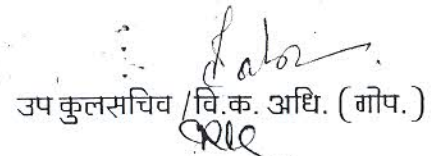 उप कुलसचिव / वि.क. अधि. (गोप.)